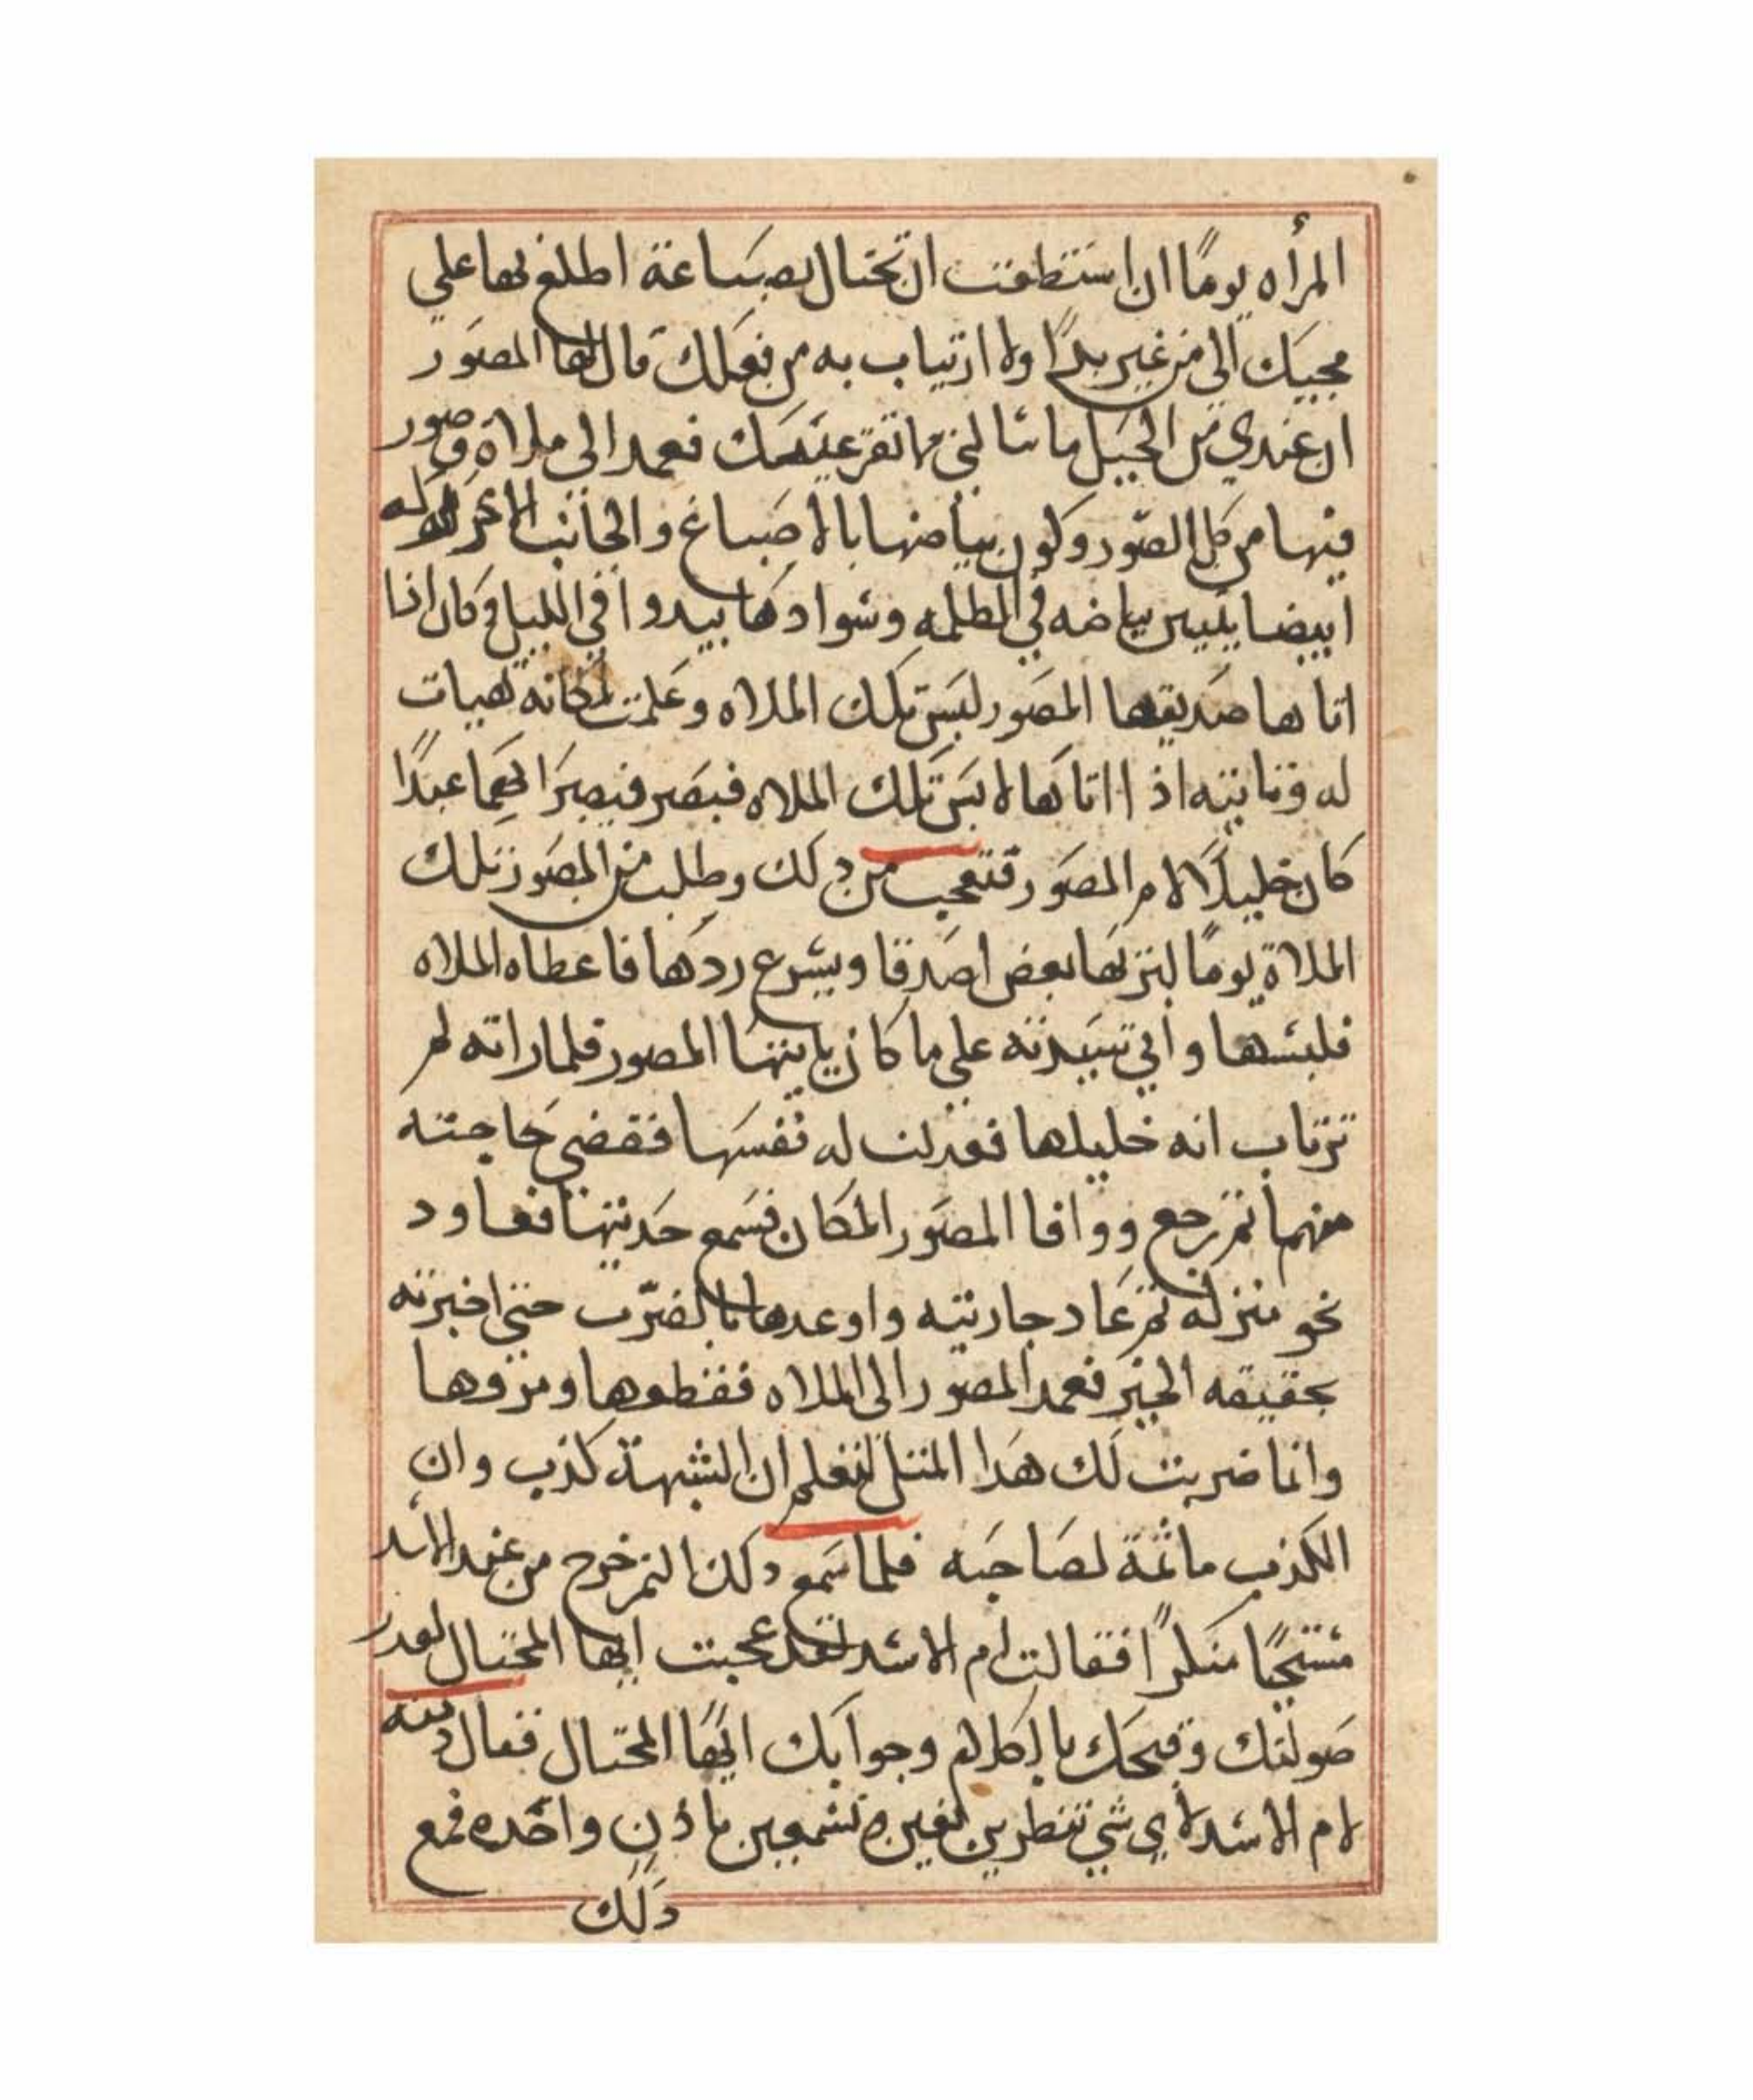 المرأه يومًا ان استطعت ان تحتال بصباعة اطلع بها علي
مجييك الي من غير بدا ولا ارتياب به من فعلك قال لها المصور
ان عندي من الحيل ما سالتي ما تقر عينك فعمد الى ملاة وصور
فيها من كل الصور وكون بياضها بالاصباغ والجانب الاخر
ابيضا يبين بياضه في الظلمه وسوادها يبدوا في الليل وكان اذا
اتاها صديقها المصور لبس تلك الملاه وعلمت مكانه تهيات
له وتاتيه اذا اتاها لابس تلك الملاه فبصر فبصر بهما عبدًا
كان خليلًا لام المصور فتعجب من ذلك وطلب من المصور تلك
الملاة يومًا ليز بها بعض اصدقا ويسرع ردها فاعطاه الملاه
فلبسها واتي سيدته علي ما كان ياتيها المصور فلما راته لم
ترتاب انه خليلها فبدلت له نفسها فقضى حاجته
منها ثم رجع ووافا المصور المكان فسمع حديثها فعاود
نحو منزله ثم عاد جاريته واوعدها بالضرب حتي اخبرته
بحقيقه الخبر فعمد المصور الى الملاه فقطعها ومزقها
وانما ضربت لك هدا المثل لتعلم ان الشبهة كذب وان
الكذب ماثمة لصاحبه فلما سمع دلك النمر خرج من عند الاسد
مستحيًا منكرًا فقالت ام الاسد لقد عجبت ايها المحتال لقدر
صولتك وقبحك بالكلام وجوابك ايها المحتال فقال دمنه
لام الاسد لاي شي تنظرين بعين وتسمعين باذن واحده فمع
دلك